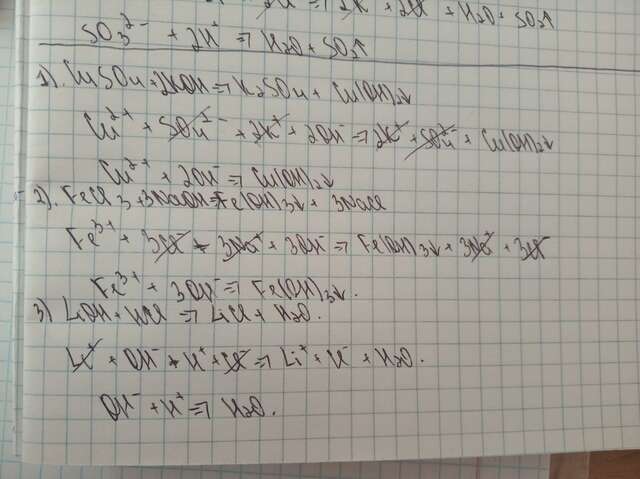 + H₂O + SO₂↑
SO₃²⁻ + 2H⁺ => H₂O + SO₂↑
1). CuSO₄ + 2KOH => K₂SO₄ + Cu(OH)₂↓
Cu²⁺ + SO₄²⁻ + 2K⁺ + 2OH⁻ => 2K⁺ + SO₄²⁻ + Cu(OH)₂↓
Cu²⁺ + 2OH⁻ => Cu(OH)₂↓
2). FeCl₃ + 3NaOH = Fe(OH)₃↓ + 3NaCl
Fe³⁺ + 3Cl⁻ + 3Na⁺ + 3OH⁻ => Fe(OH)₃↓ + 3Na⁺ + 3Cl⁻
Fe³⁺ + 3OH⁻ => Fe(OH)₃↓.
3) LiOH + HCl => LiCl + H₂O.
Li⁺ + OH⁻ + H⁺ + Cl⁻ => Li⁺ + Cl⁻ + H₂O.
OH⁻ + H⁺ => H₂O.